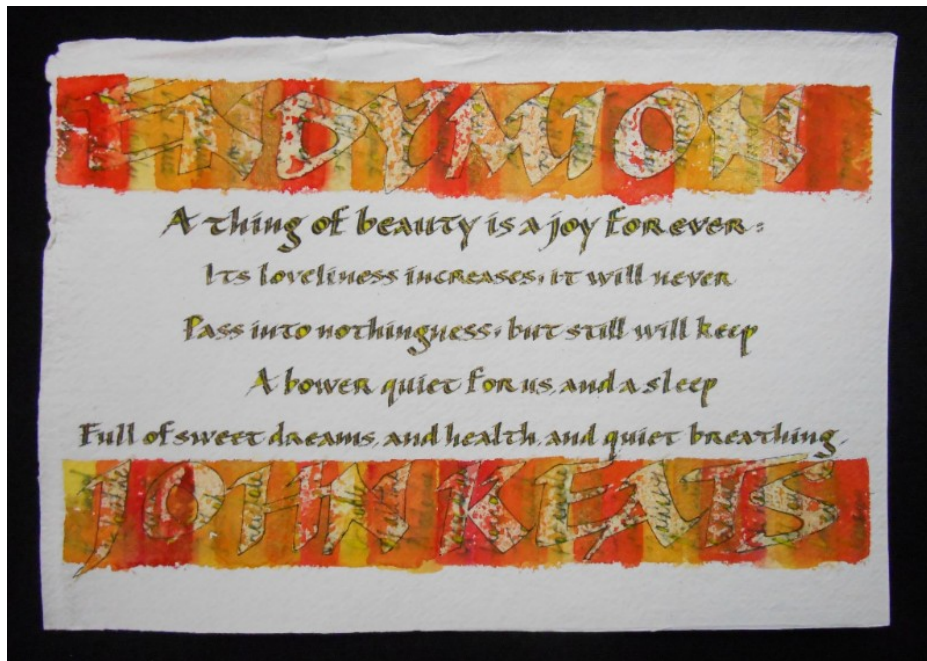 ENDYMION
A thing of beauty is a joy forever:
Its loveliness increases; it will never
Pass into nothingness; but still will keep
A bower quiet for us, and a sleep
Full of sweet dreams, and health, and quiet breathing.
JOHN KEATS